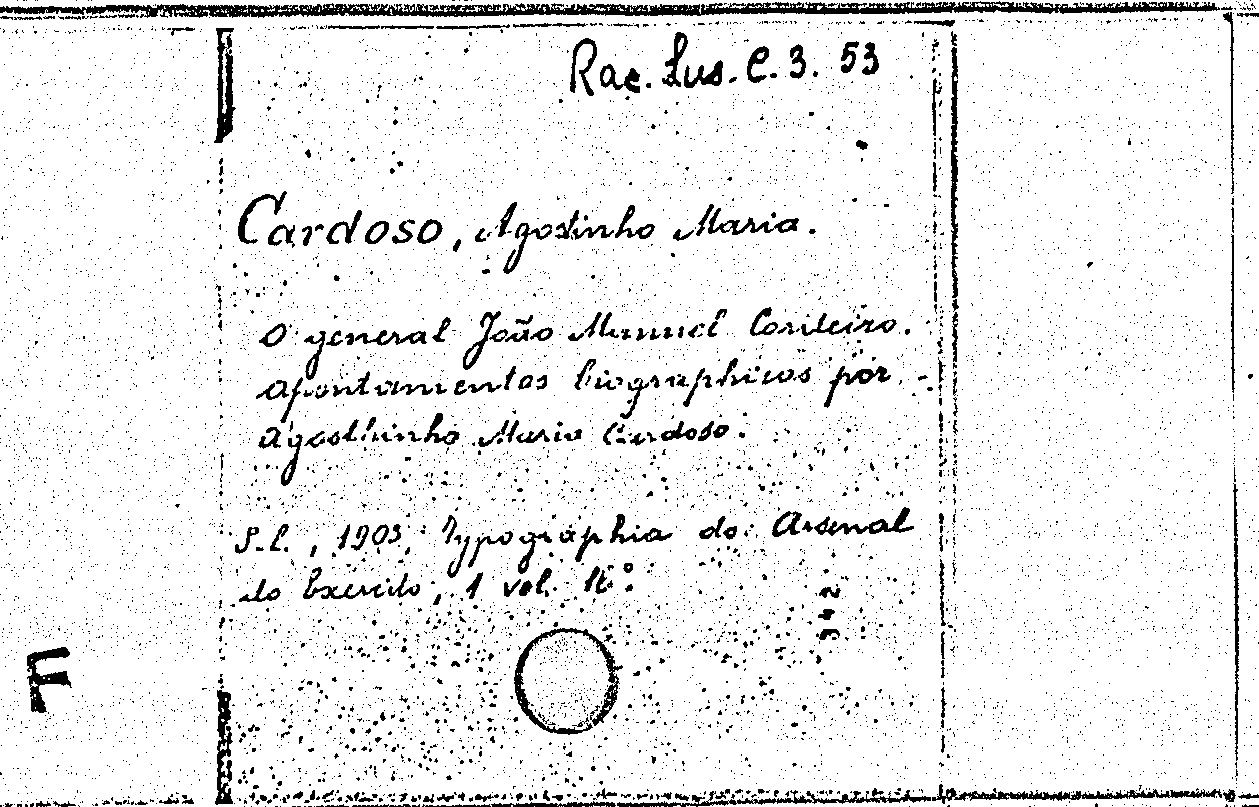 Rac. Lus. C. 3. 53
Cardoso, Agostinho Maria.
O general João Manuel Cordeiro.
Apontamentos biographicos por
Agosthinho Maria Cardoso.
S.l., 1903, Typographia do Arsenal
do Exercito, 1 vol. 16º
342
F